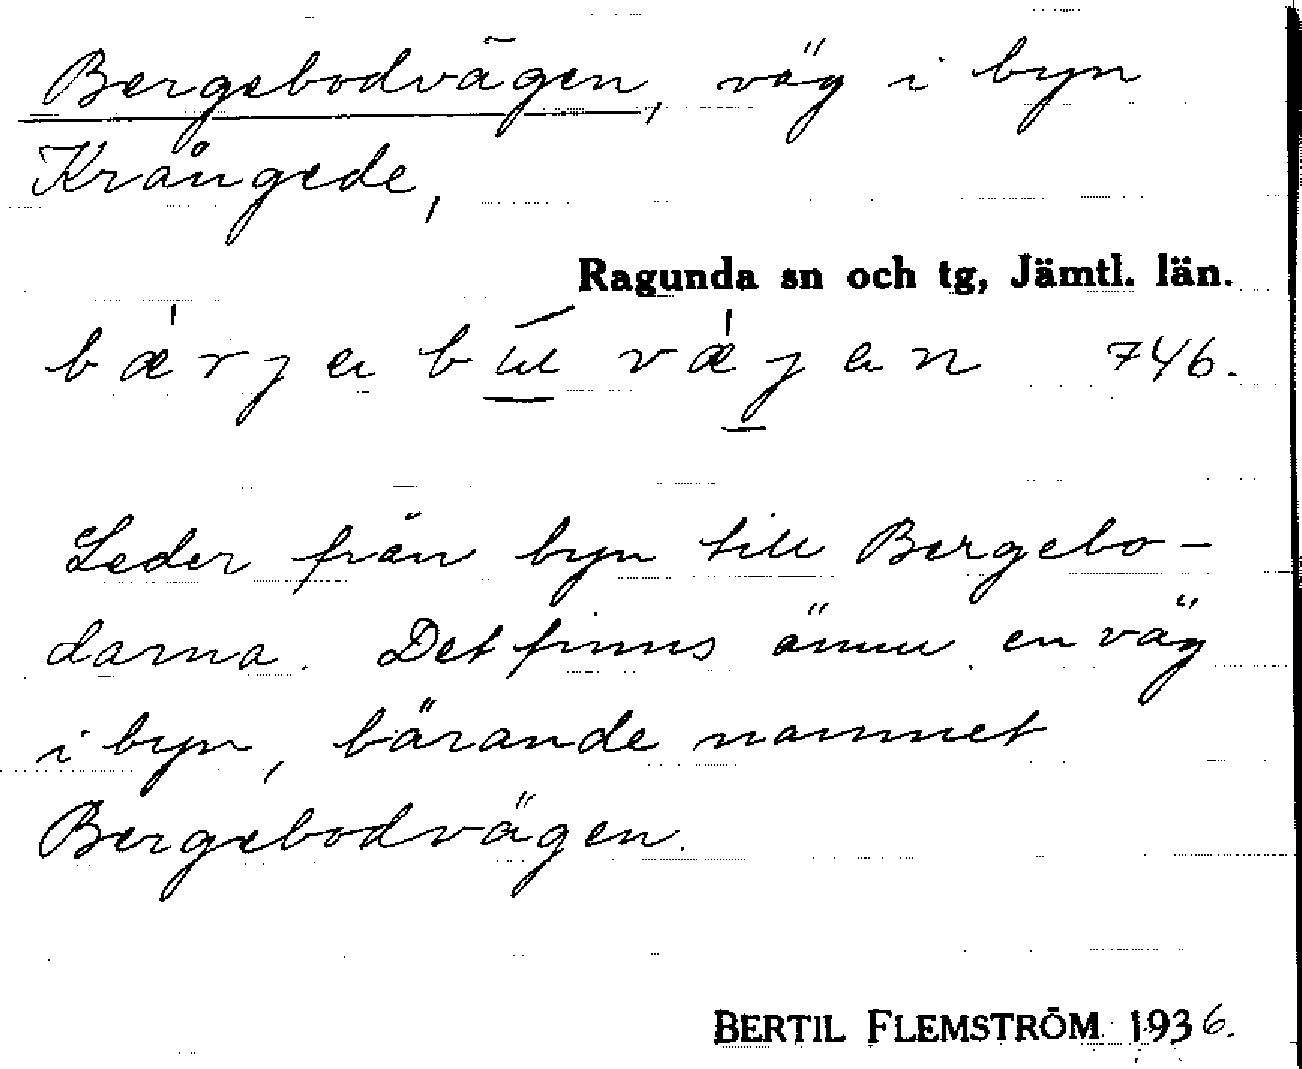 Bergebodvägen, väg i byn
Krångede,
Ragunda sn och tg, Jämtl. län.
746.
Leder från byn till Bergebo-
darna. Det finns ännu en väg
i byn, bärande namnet
Bergebodvägen.
BERTIL FLEMSTRÖM 1936.